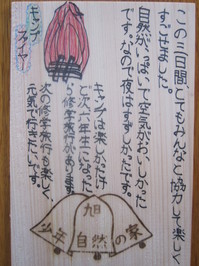 この三日間、とてもみんなと協力して楽しく
すごせました。
自然がいっぱいで空気がおいしかった
です。なので夜はすずしかったです。
キャンプは楽しかったけ
ど次、六年生になった
ら修学旅行があります。
次の修学旅行も楽しく
元気で行きたいです。
キャンプ
ファイヤー
旭
少年自然の家